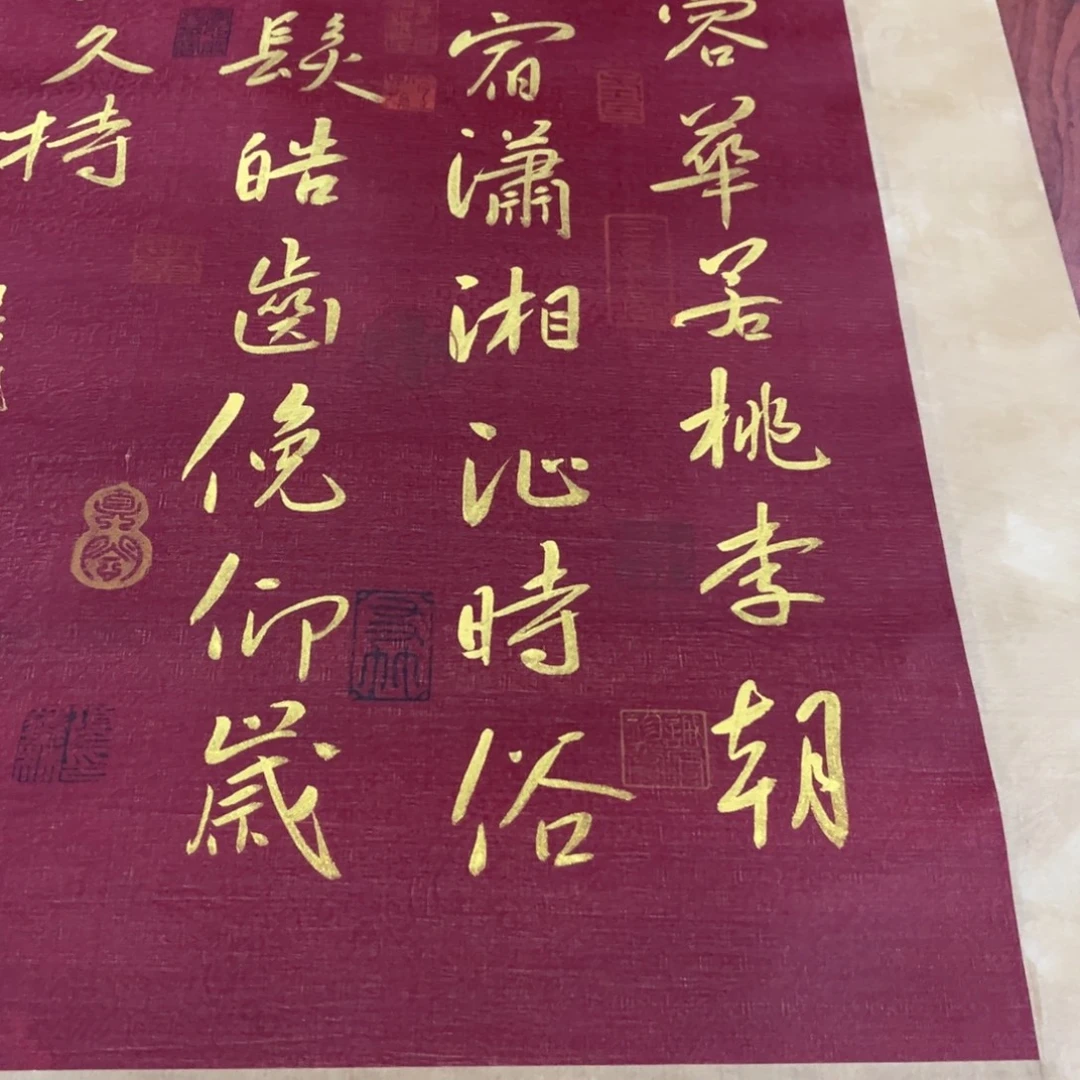 容華若桃李朝
宿瀟湘沚時俗
髮皓齒俛仰歲
久持